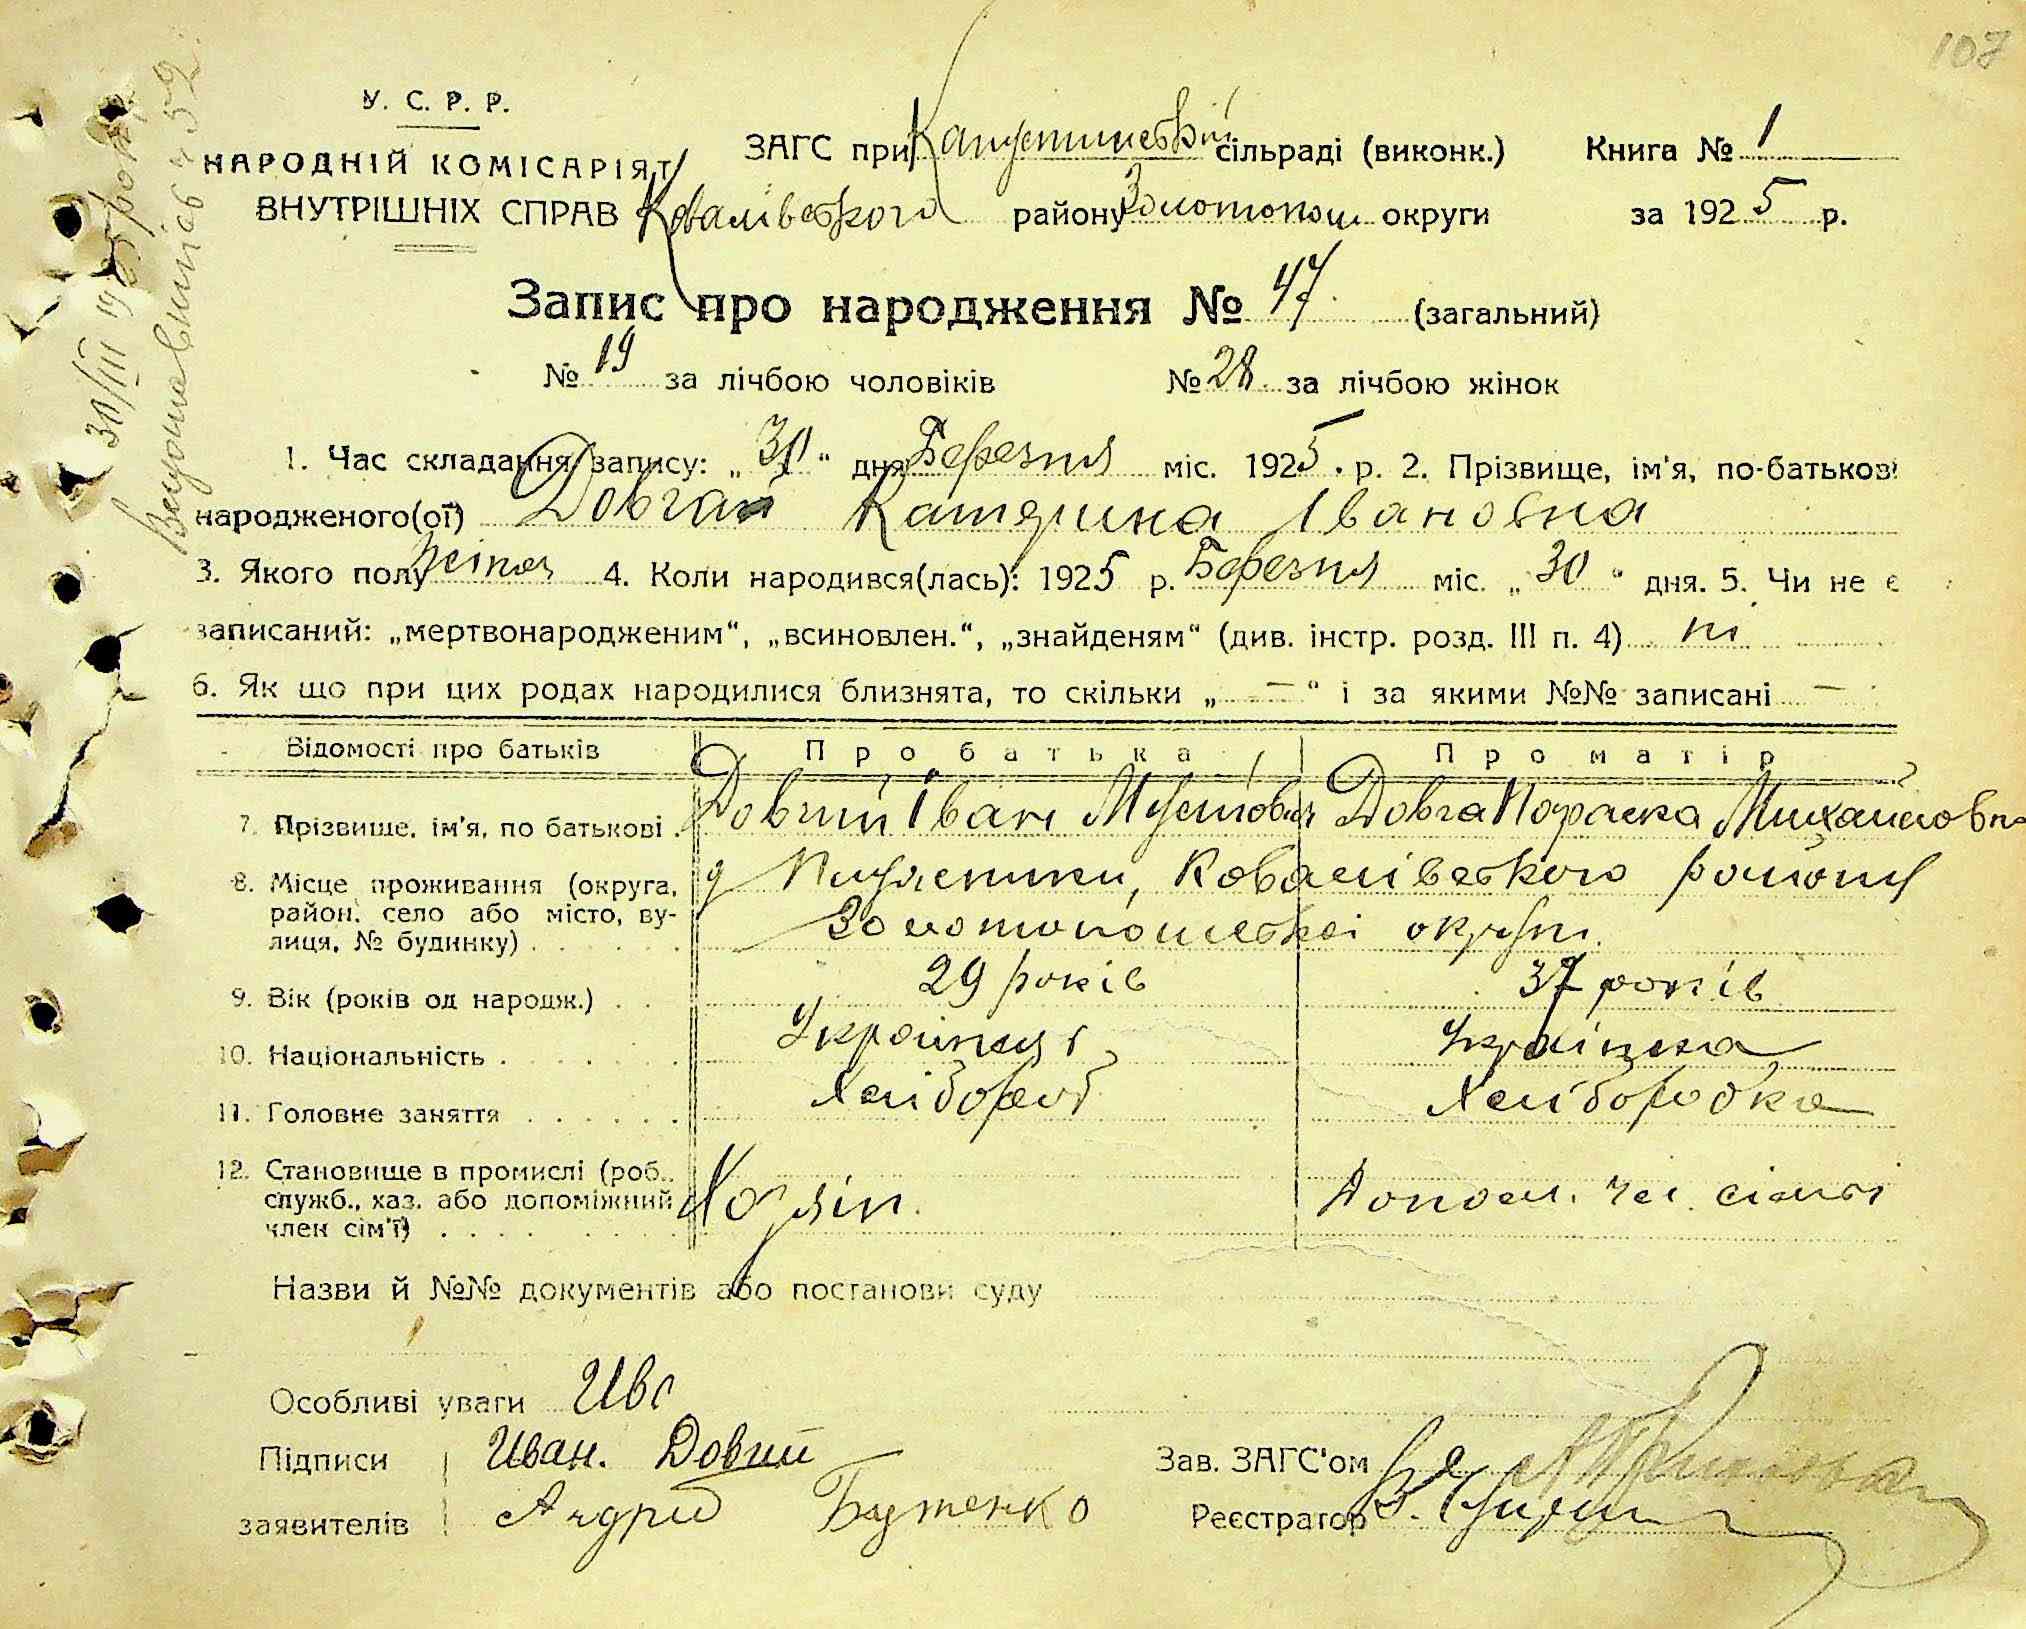 107
У. С. Р. Р.
НАРОДНІЙ КОМІСАРІЯТ
ВНУТРІШНІХ СПРАВ
ЗАГС при Капустинській сільраді (виконк.) Книга № 1
Ковалівського району Золотонош округи за 1925 р.
Запис про народження № 47 (загальний)
№ 19 за лічбою чоловіків № 28 за лічбою жінок
1. Час складання запису: „30“ дня Березня міс. 1925 р. 2. Прізвище, ім'я, по-батькові
народженого(ої) Довгая Катерина Івановна
3. Якого полу 4. Коли народився(лась): 1925 р. Березня міс. „30“ дня. 5. Чи не є
записаний: „мертвонародженим“, „всиновлен.“, „знайденям“ (див. інстр. розд. III п. 4) ні
6. Як що при цих родах народилися близнята, то скільки „ — “ і за якими №№ записані —
Відомості про батьків Про батька Про матір
7. Прізвище, ім'я, по батькові Довгий Іван Мусійович Довга Параска Михайловна
8. Місце проживання (округа, район, село або місто, вулиця, № будинку) Ковалівського району
Золотоношської округи
9. Вік (років од народж.) 29 років 37 років
10. Національність Українець Українка
11. Головне заняття Хлібороб Хлібородка
12. Становище в промислі (роб., служб., хаз. або допоміжний член сім'ї) Хозяїн. Допом. чл. сімї
Назви й №№ документів або постанови суду
Особливі уваги Ива
Підписи Иван. Довгий Зав. ЗАГС'ом
заявителів Андрій Бутенко Реєстратор
30/III 1925 року